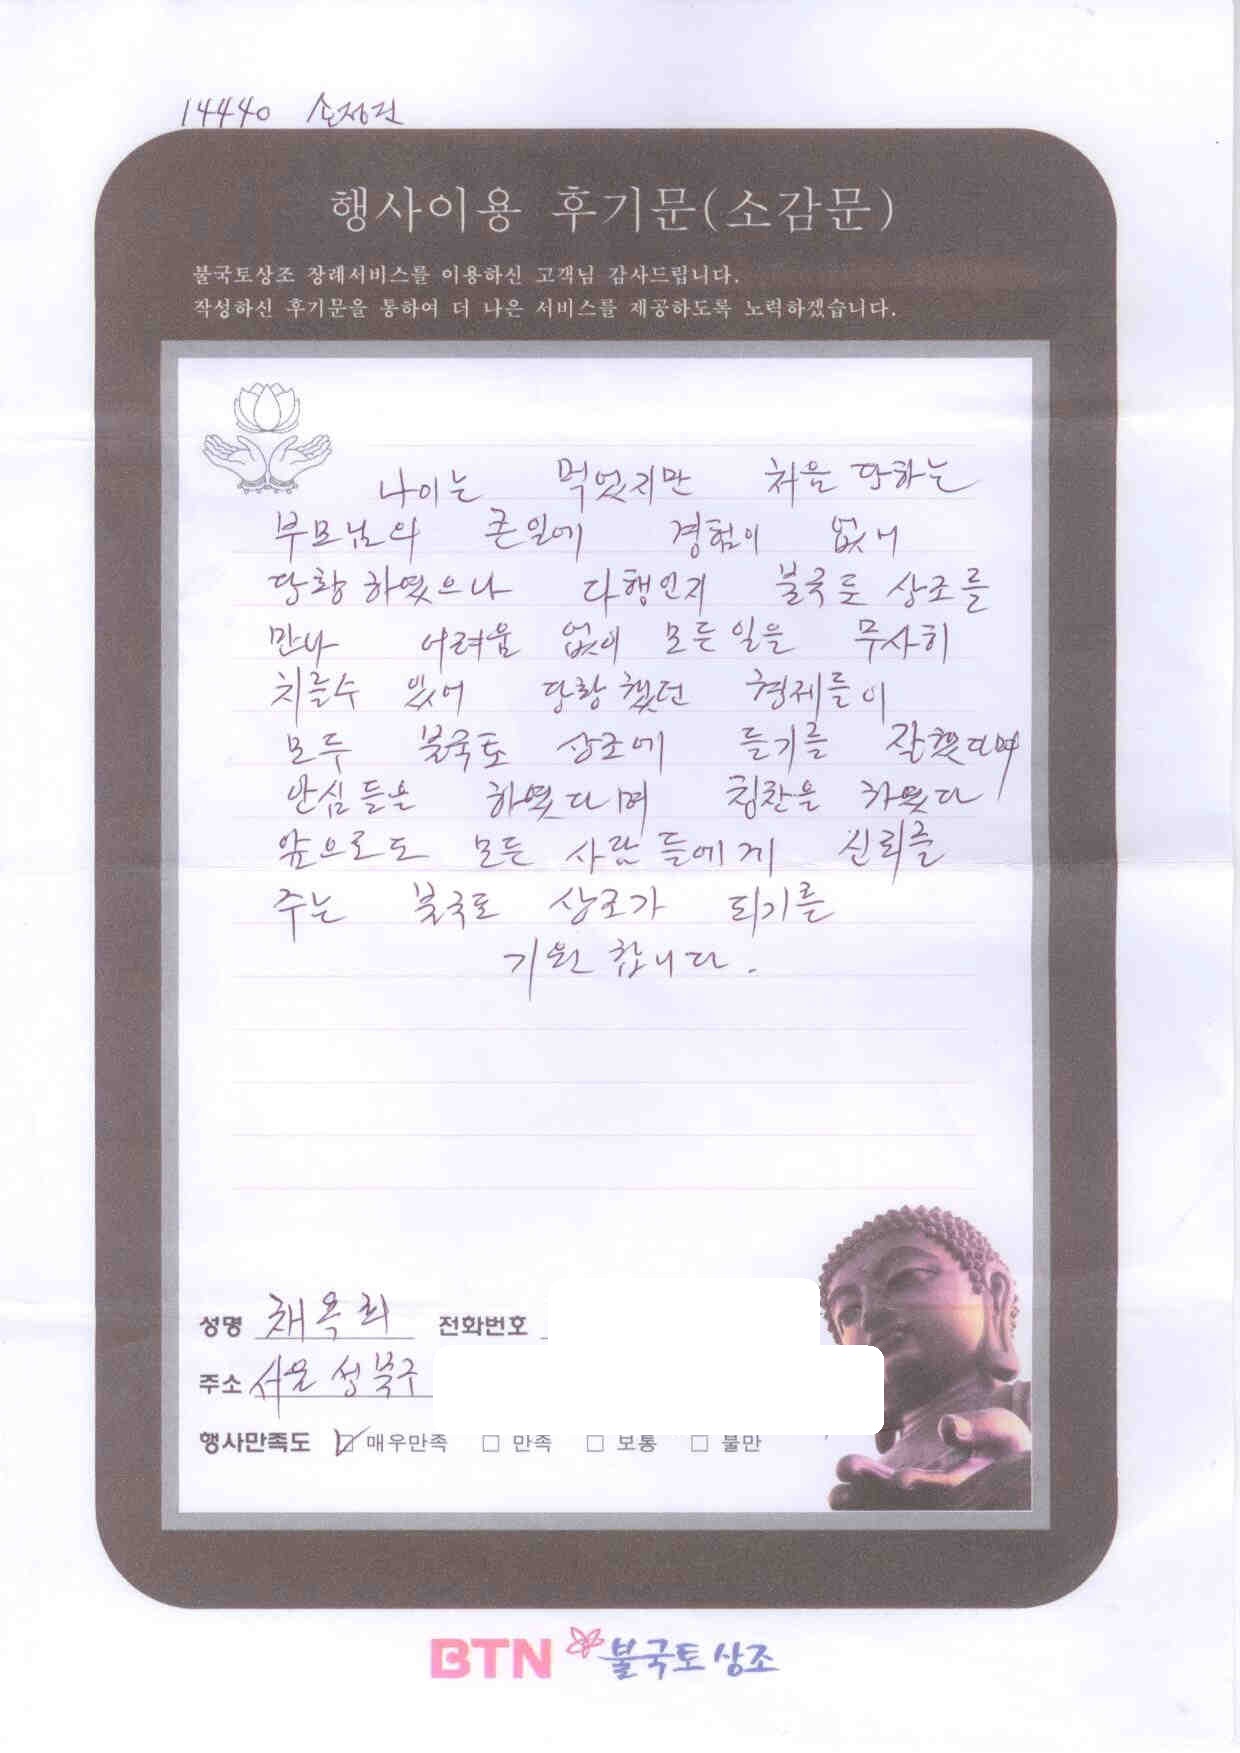 14440 손정진
행사이용 후기문(소감문)
불국토상조 장례서비스를 이용하신 고객님 감사드립니다.
작성하신 후기문을 통하여 더 나은 서비스를 제공하도록 노력하겠습니다.
나이는 먹었지만 처음 당하는
부모님의 큰일에 경험이 없어
당황 하였으나 다행인지 불국토 상조를
만나 어려움 없이 모든일을 무사히
치를수 있어 당황했던 형제들이
모두 불국토 상조에 들기를 잘했다며
안심들을 하였다며 칭찬을 하였다
앞으로도 모든 사람들에게 신뢰를
주는 불국토 상조가 되기를
기원합니다.
성명 채옥희 전화번호
주소 서울 성북구
행사만족도 ☑ 매우만족 □ 만족 □ 보통 □ 불만
BTN 불국토상조